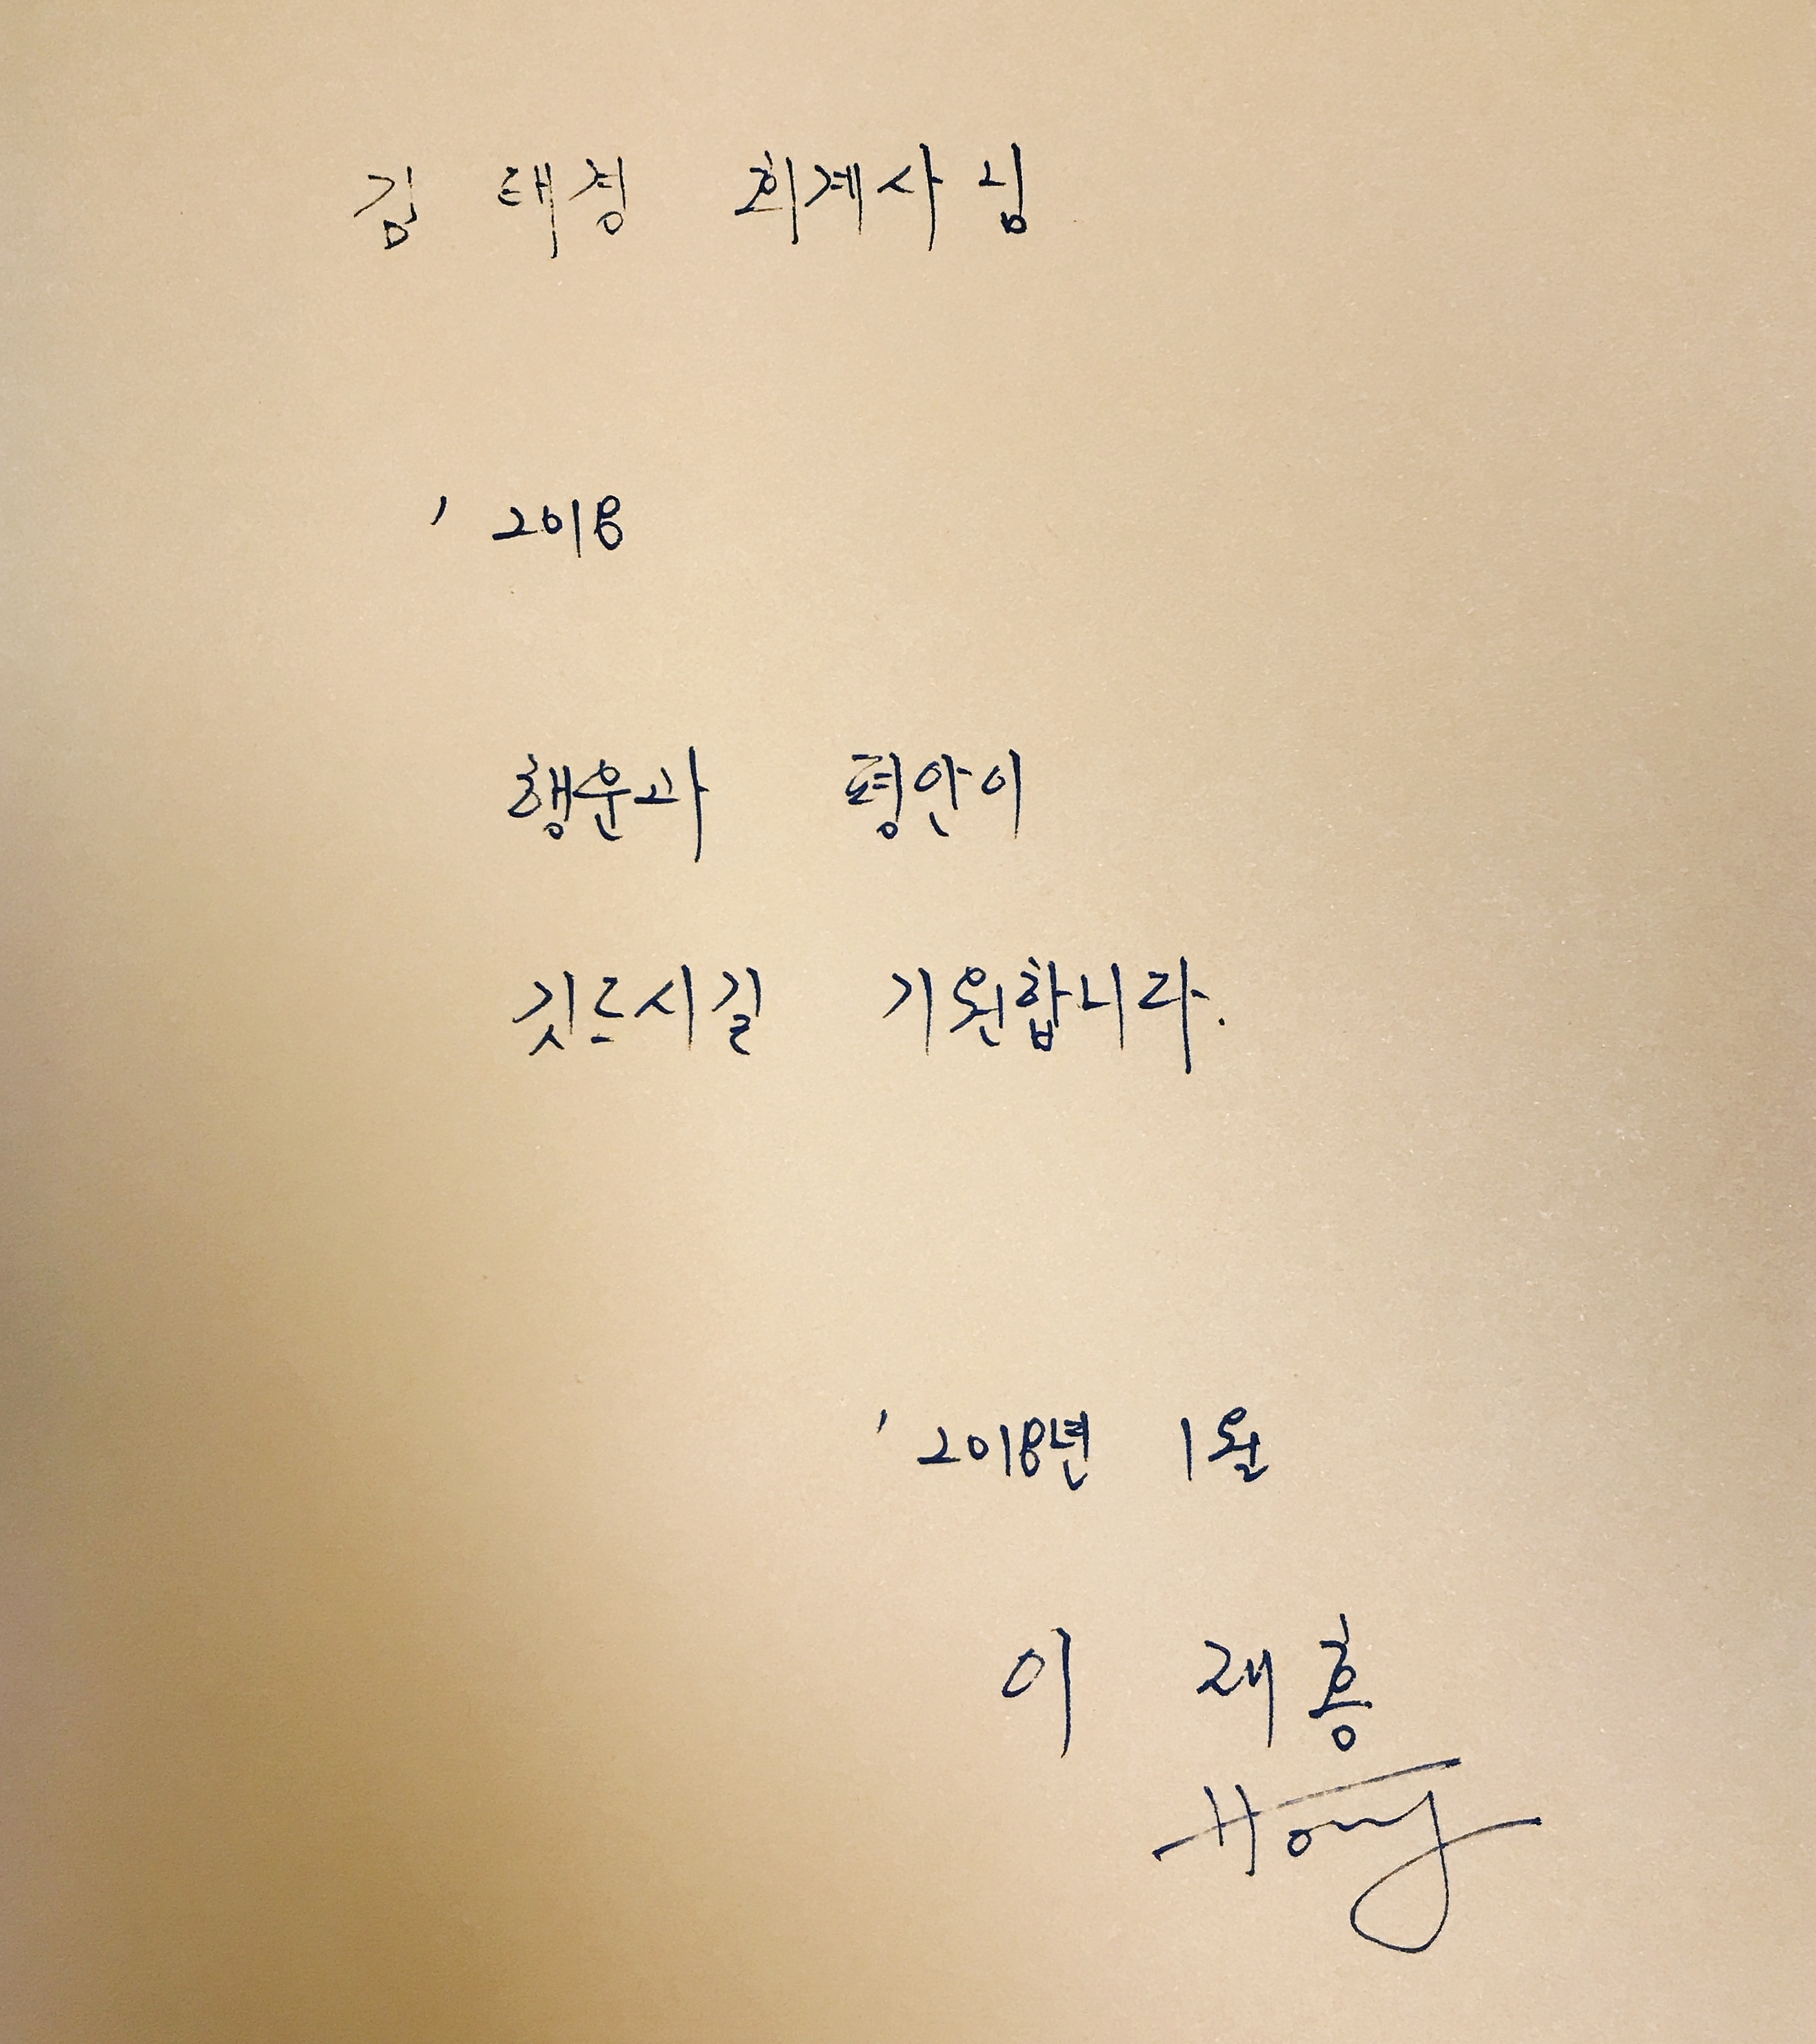 김 태청 회계사님
' 2018
행운과 평안이
깃드시길 기원합니다.
' 2018년 1월
이 재홍
Hong